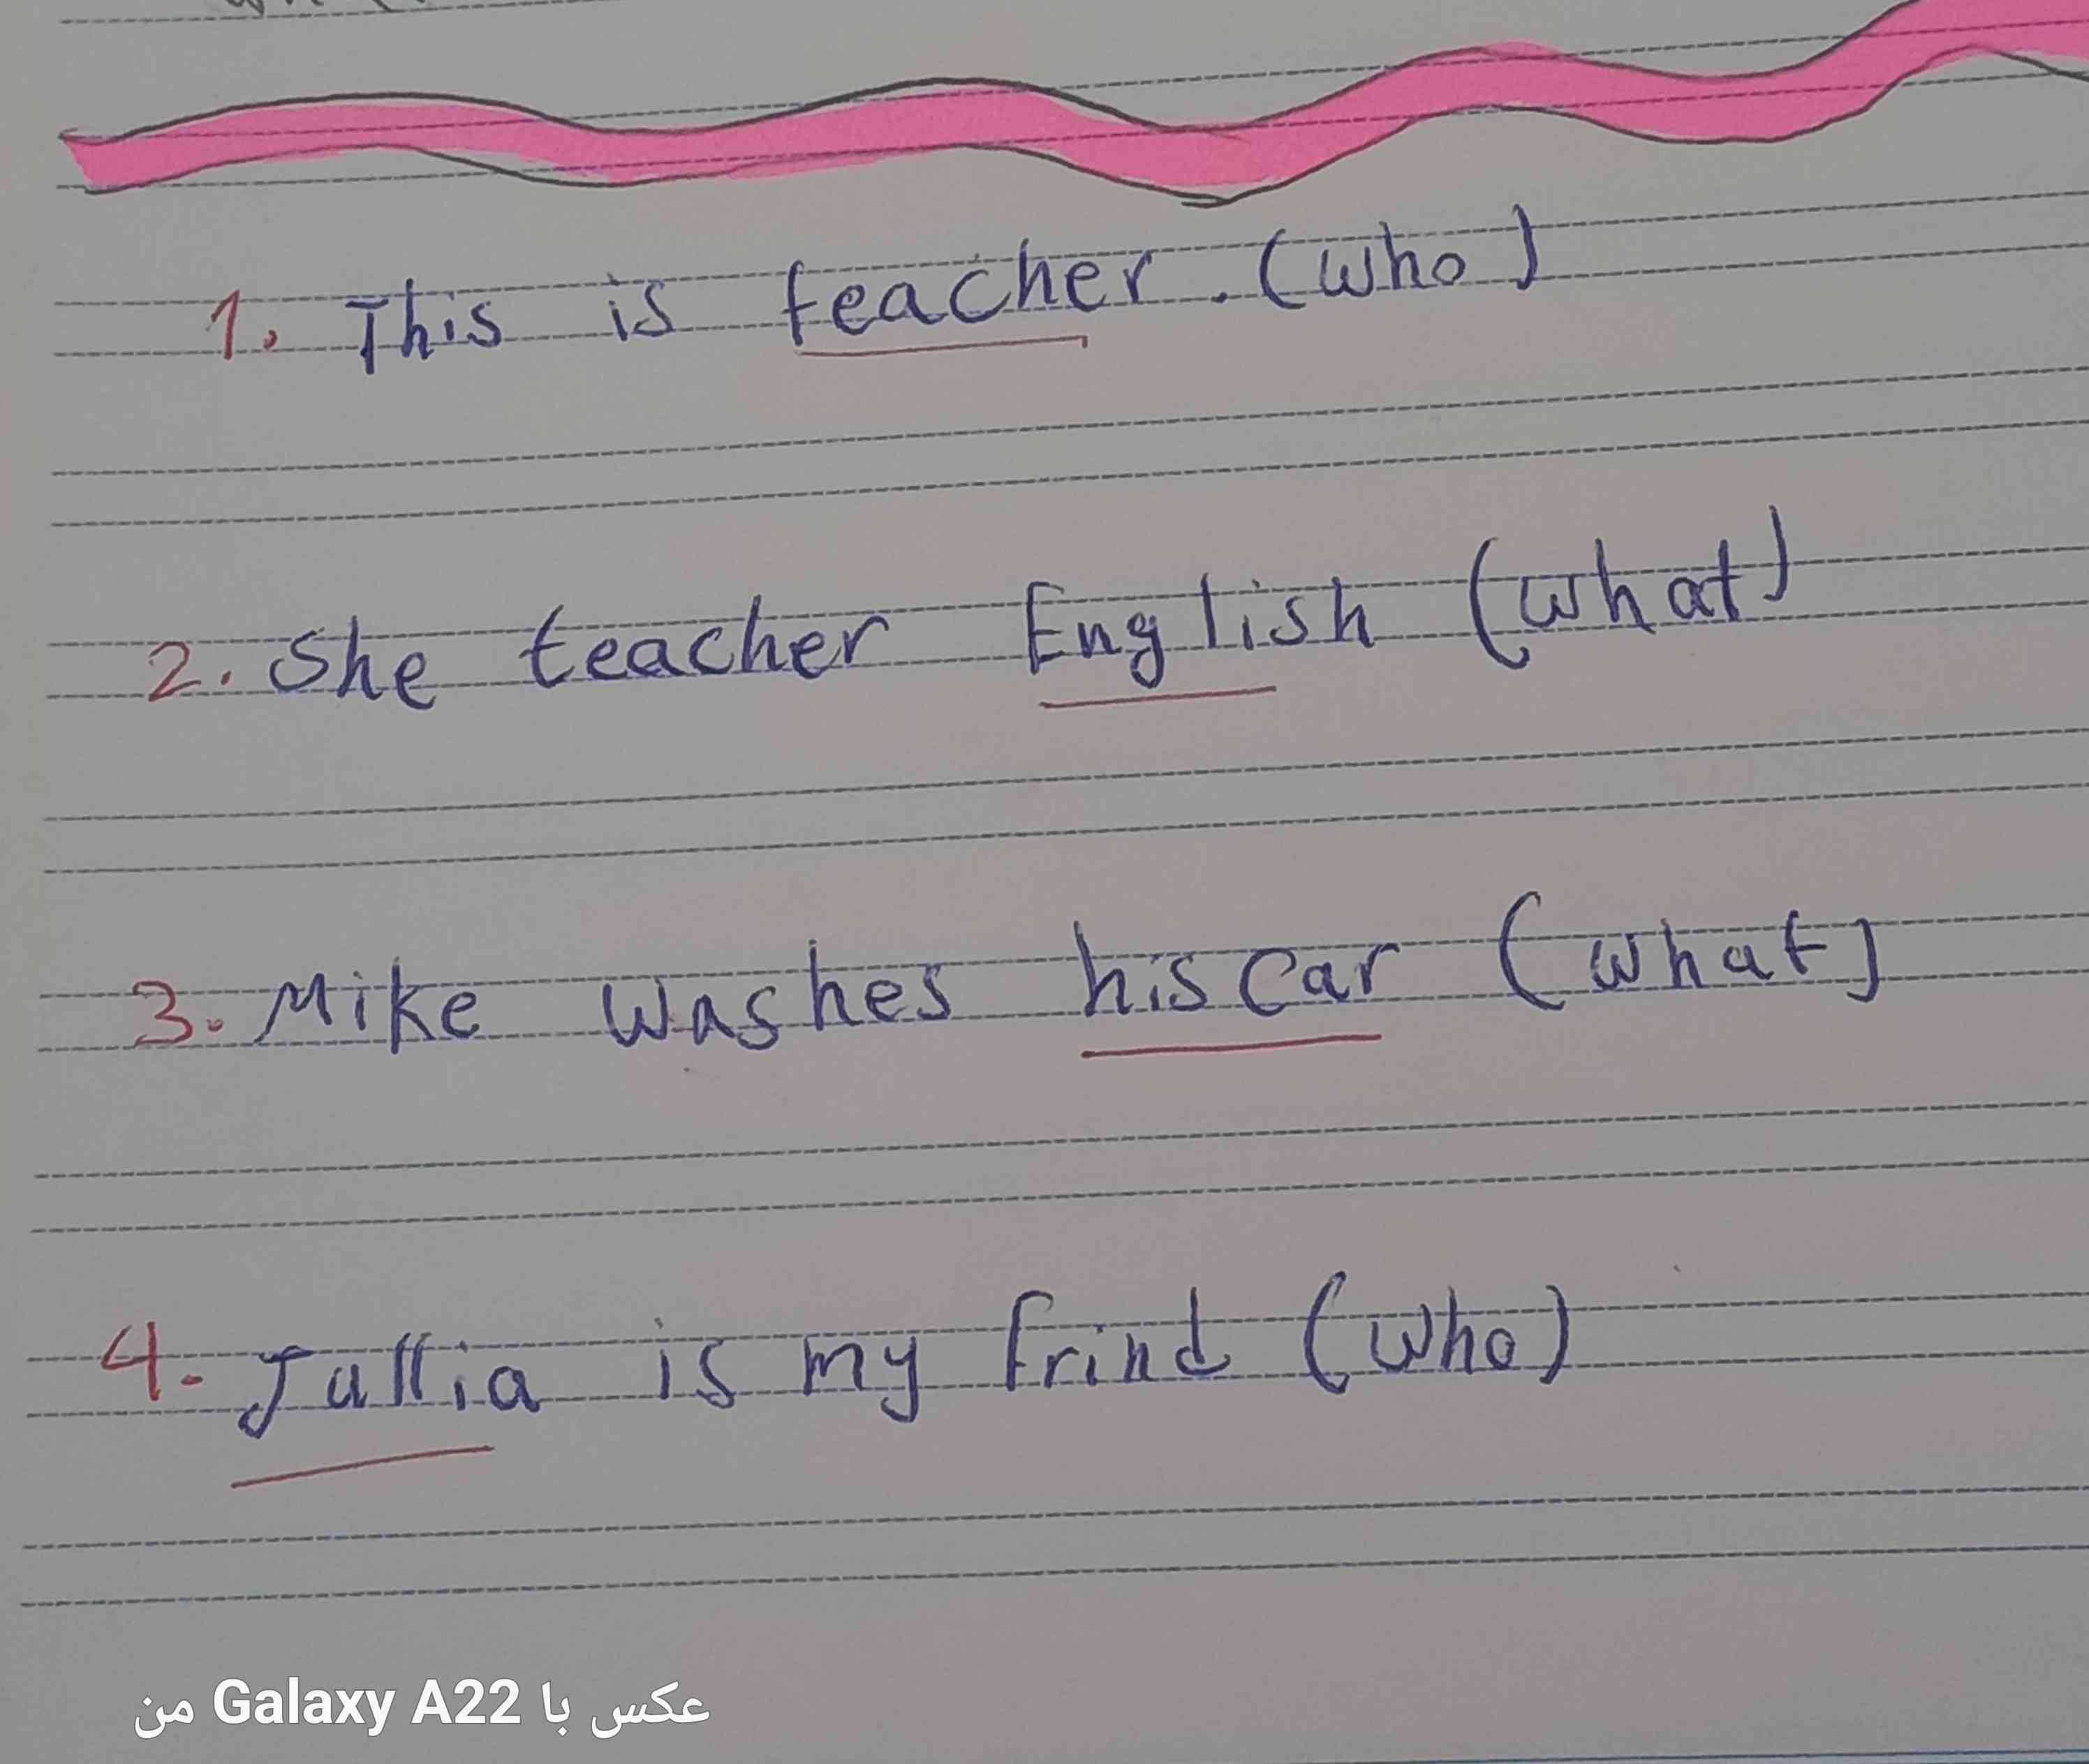 1. This is teacher. (who)
2. She teacher English (what)
3. Mike washes his car (what)
4. Jullia is my frind (who)
عکس با Galaxy A22 من